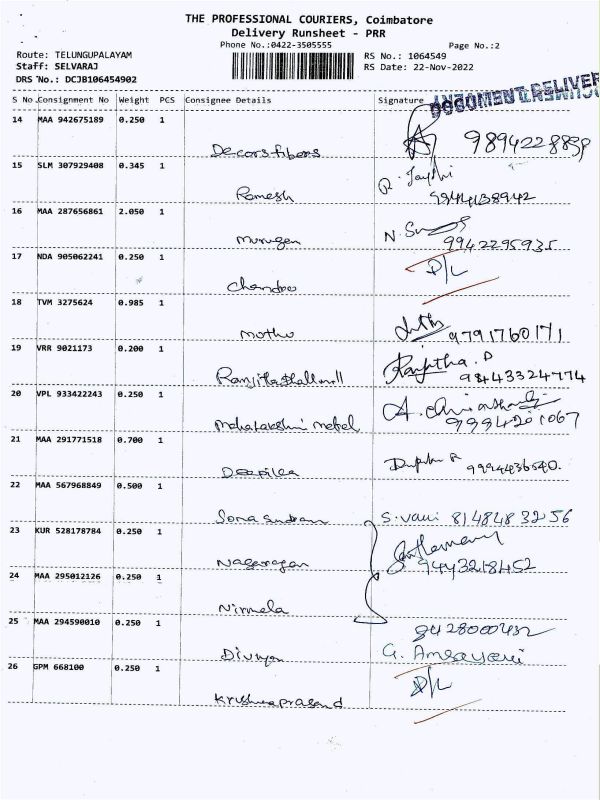 THE PROFESSIONAL COURIERS, Coimbatore
Delivery Runsheet - PRR
Phone No.:0422-3505555 Page No.:2
Route: TELUNGUPALAYAM RS No.: 1064549
Staff: SELVARAJ RS Date: 22-Nov-2022
DRS No.: DCJB106454902
S No Consignment No Weight PCS Consignee Details Signature
14 MAA 942675189 0.250 1
Decorsfibers
15 SLM 307929408 0.345 1
Ramesh 9344138942
16 MAA 287656861 2.050 1
Murugan 9942295935
17 NDA 905062241 0.250 1 D/L
Chandra
18 TVM 3275624 0.985 1
Mothu 9791760171
19 VRR 9021173 0.200 1
Ranjitha D
98443324774
20 VPL 933422243 0.250 1
Mahalakshmi metal 9994201067
21 MAA 291771518 0.700 1
Deepika 9994436540.
22 MAA 567968849 0.500 1
S.vani 8148483256
23 KUR 528178784 0.250 1
Nagarajan 9443218452
24 MAA 295012126 0.250 1
Nirmela
25 MAA 294590010 0.250 1
9428000432
Divya
26 GPM 668100 0.250 1 D/L
Krishnaprasand